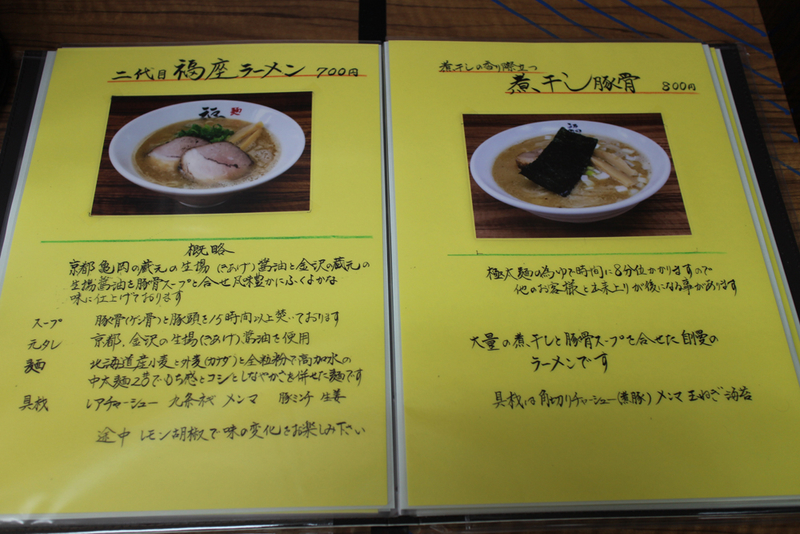 二代目 福座ラーメン 700円
概略
京都亀岡の蔵元の生揚(きあげ)醤油と金沢の蔵元の
生揚醤油を豚骨スープと合せ風味豊かにふくよかな
味に仕上げております
スープ 豚骨(ゲン骨)と豚頭を15時間以上焚いております
元タレ 京都、金沢の生揚(きあげ)醤油を使用
麺 北海道産小麦と外麦(カナダ)と全粒粉で高加水の
中太麺28でもち感とコシとしなやかさを併せた麺です
具材 レアチャーシュー 九条ネギ メンマ 豚ミンチ 生姜
途中 レモン胡椒で味の変化をお楽しみ下さい
煮干しの香り際立つ
煮干し豚骨 800円
極太麺の為ゆで時間に8分位かかりますので
他のお客様と出来上りが後になる事があります
大量の煮干しと豚骨スープを合せた自慢の
ラーメンです
具材は角切りチャーシュー(煮豚)メンマ 玉ねぎ 海苔